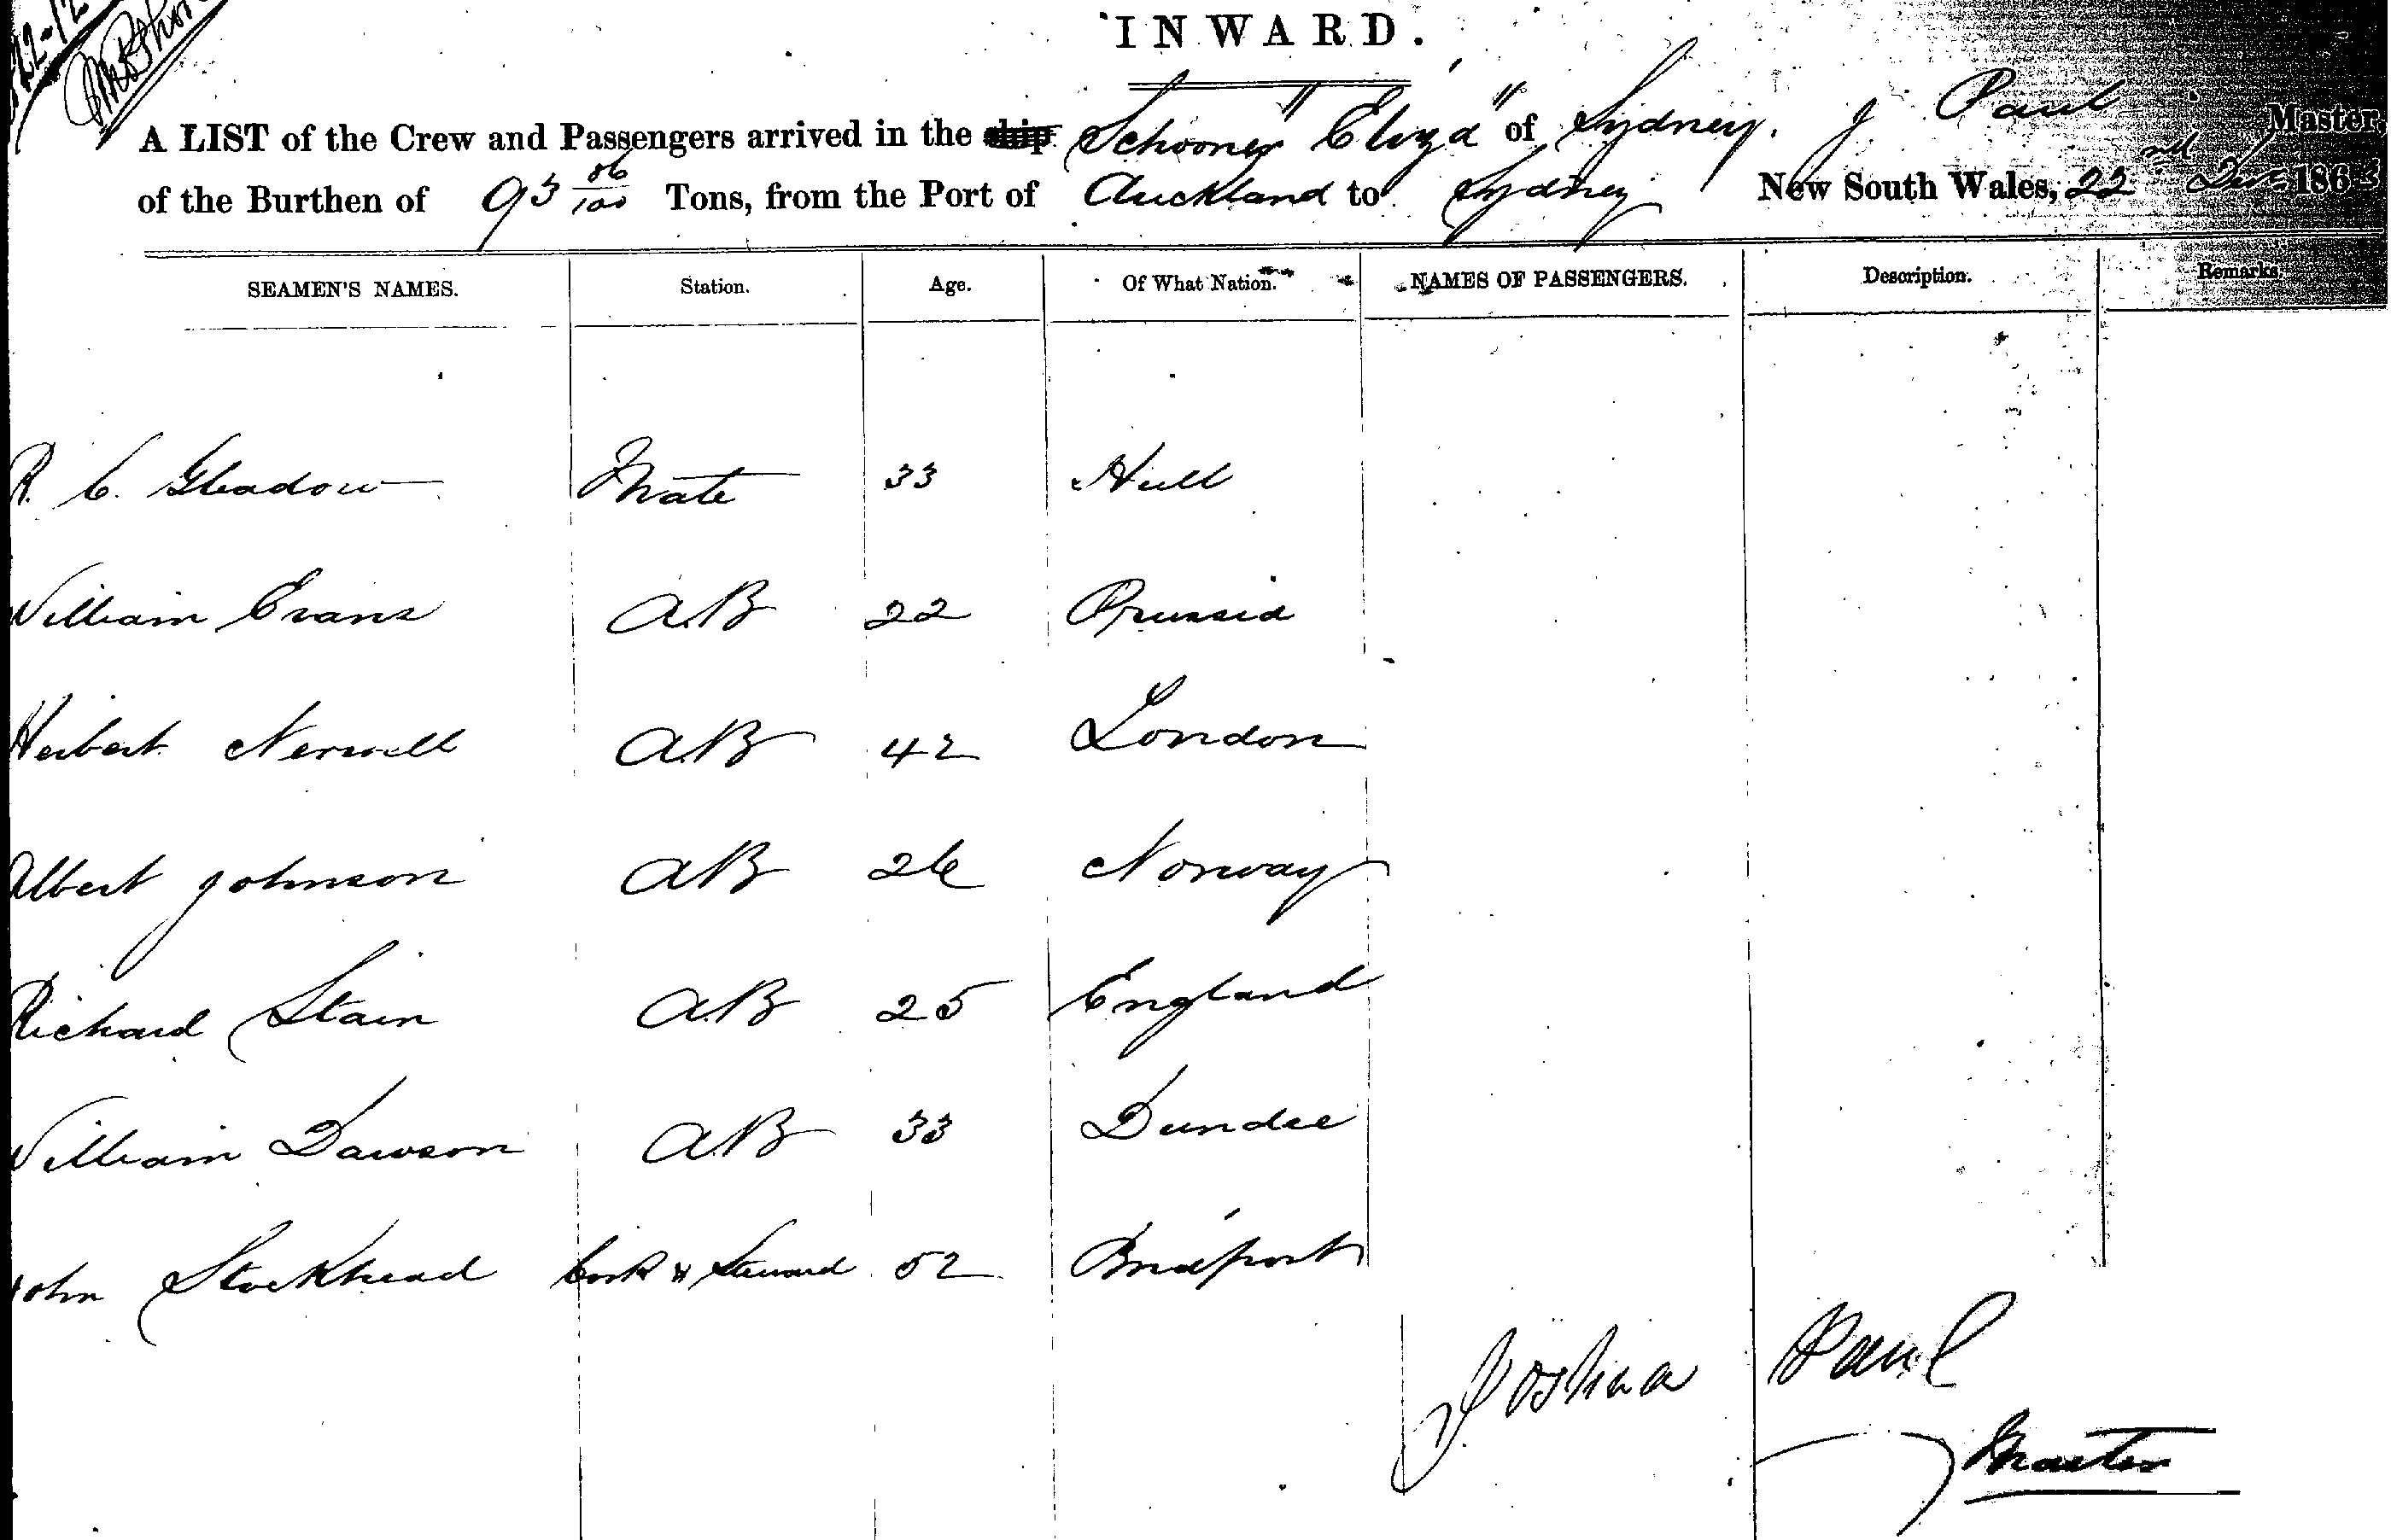 22-12
INWARD.
A LIST of the Crew and Passengers arrived in the ship Schooner "Eliza" of Sydney. J Paul Master,
of the Burthen of 93 86/100 Tons, from the Port of Auckland to Sydney New South Wales, 22nd Decr 1863
SEAMEN'S NAMES. Station. Age. Of What Nation. NAMES OF PASSENGERS. Description. Remarks.
R. C. Gleadow Mate 33 Hull
William Evans AB 22 Prussia
Herbert Nerwell AB 42 London
Albert Johnson AB 26 Norway
Richard Stain AB 25 England
William Dawson AB 33 Dundee
John Stockhead Cook & Steward 52 Bridport
Joshua Paul
Master